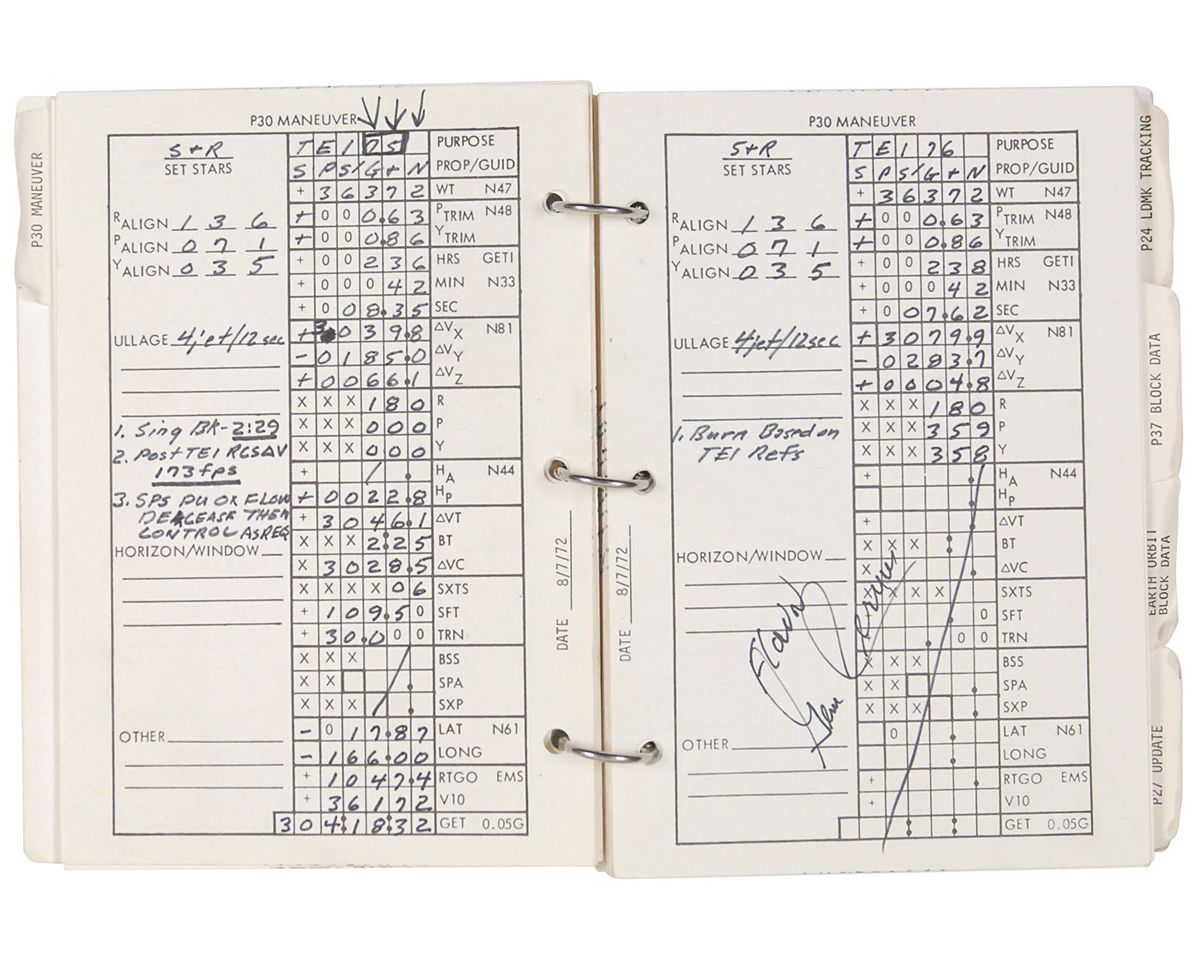 P30 MANEUVER
P30 MANEUVER
S+R
SET STARS
R ALIGN 1 3 6
P ALIGN 0 7 1
Y ALIGN 0 3 5
ULLAGE 4jet/12sec
1. Sing BK - 2:29
2. Post TEI RCS ΔV
173 fps
3. SPS PU OX FLOW
DECREASE THEN
CONTROL AS REQ
HORIZON/WINDOW
OTHER
T E I 75 PURPOSE
S P S/G + N PROP/GUID
+ 3 6 3 7 2 WT N47
+ 0 0 0.6 3 P TRIM N48
+ 0 0 0.8 6 Y TRIM
+ 0 0 2 3 6 HRS GETI
+ 0 0 0 4 2 MIN N33
+ 0 0 8.3 5 SEC
+ 3 0 3 9.8 ΔVX N81
- 0 1 8 5.0 ΔVY
+ 0 0 6 6.1 ΔVZ
X X X 1 8 0 R
X X X 0 0 0 P
X X X 0 0 0 Y
+ / . HA N44
+ 0 0 2 2.8 HP
+ 3 0 4 6.1 ΔVT
X X X 2:2 5 BT
X 3 0 2 8.5 ΔVC
X X X X 0 6 SXTS
+ 1 0 9.5 0 SFT
+ 3 0.0 0 0 TRN
X X X BSS
X X SPA
X X X SXP
- 0 1 7.8 7 LAT N61
- 1 6 6.0 0 LONG
+ 1 0 4 7.4 RTGO EMS
+ 3 6 1 7 2 V10
3 0 4:1 8:3 2 GET 0.05G
DATE 8/7/72
P30 MANEUVER
S+R
SET STARS
R ALIGN 1 3 6
P ALIGN 0 7 1
Y ALIGN 0 3 5
ULLAGE 4jet/12sec
1. Burn Based on
TEI Refs
HORIZON/WINDOW
OTHER
T E I 76 PURPOSE
S P S/G + N PROP/GUID
+ 3 6 3 7 2 WT N47
+ 0 0 0.6 3 P TRIM N48
+ 0 0 0.8 6 Y TRIM
+ 0 0 2 3 8 HRS GETI
+ 0 0 0 4 2 MIN N33
+ 0 0 7.6 2 SEC
+ 3 0 7 9.9 ΔVX N81
- 0 2 8 3.7 ΔVY
+ 0 0 0 4.8 ΔVZ
X X X 1 8 0 R
X X X 3 5 9 P
X X X 3 5 8 Y
+ HA N44
HP
+ ΔVT
X X X BT
X ΔVC
X X X X SXTS
+ 0 SFT
+ 0 0 TRN
X X X BSS
X X SPA
X X X SXP
0 LAT N61
LONG
+ RTGO EMS
+ V10
GET 0.05G
DATE 8/7/72
Gene
P24 LDMK TRACKING
P37 BLOCK DATA
EARTH ORBIT
BLOCK DATA
P27 UPDATE